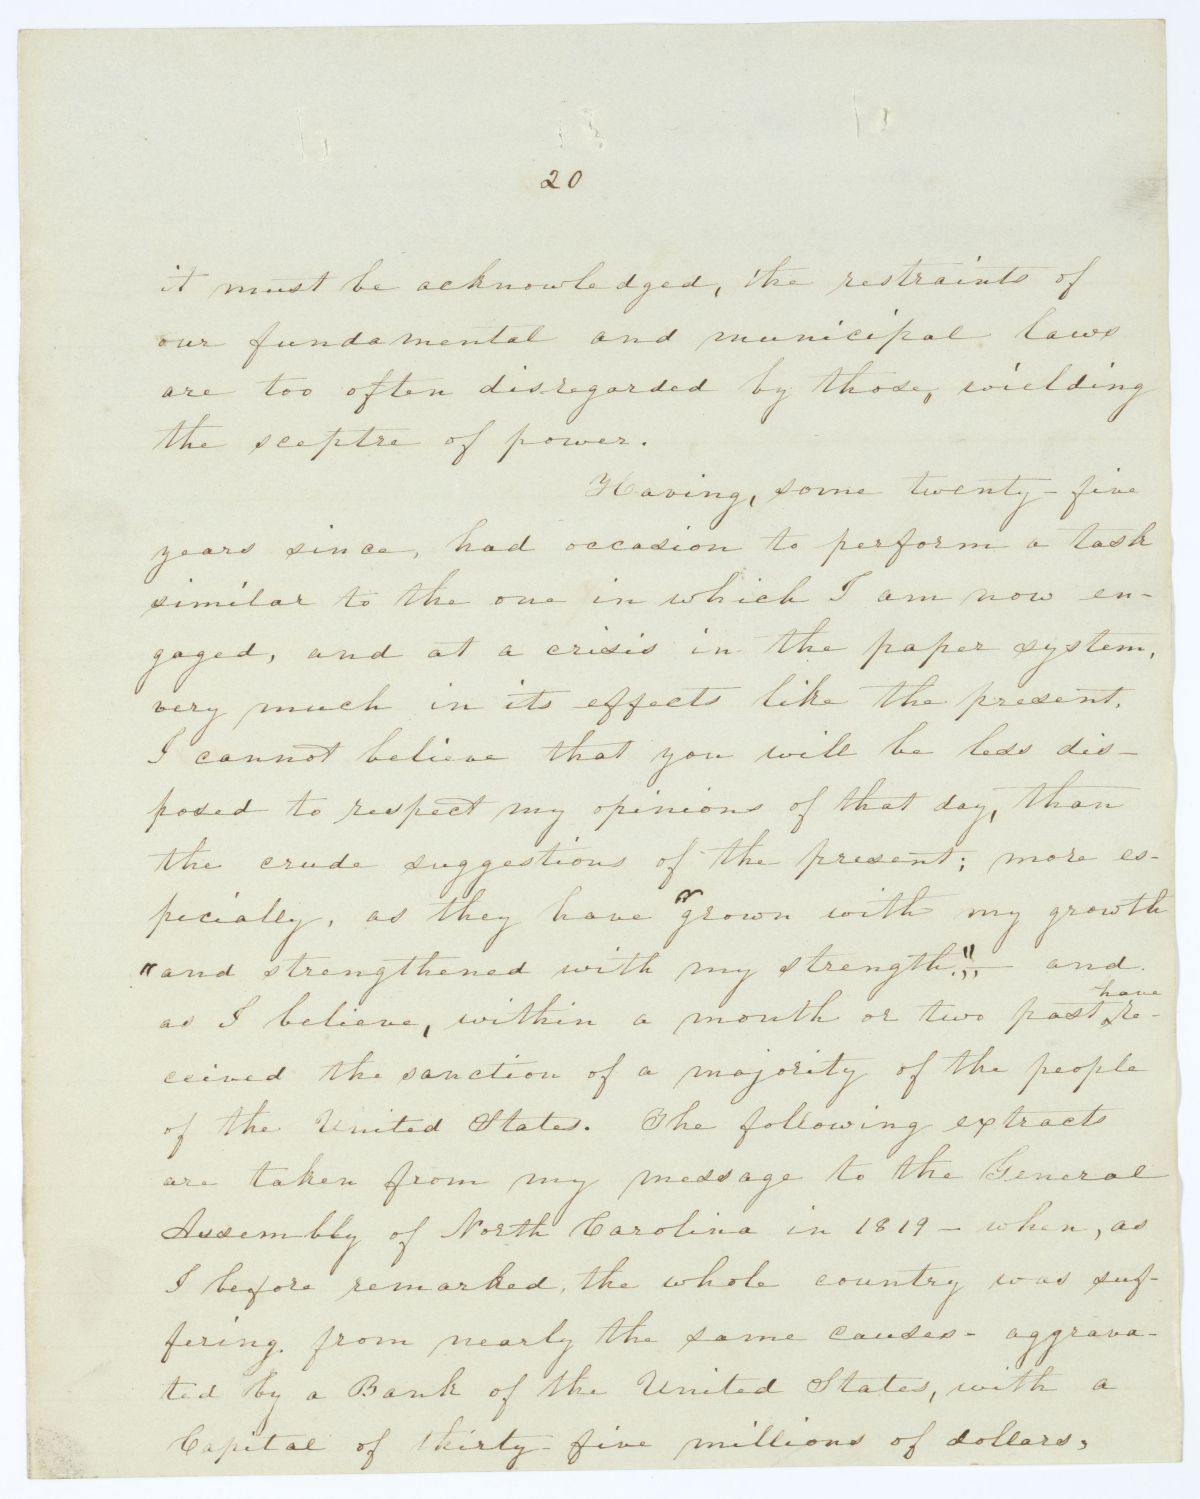 20
it must be acknowledged, the restraints of
our fundamental and municipal laws
are too often disregarded by those, wielding
the sceptre of power.
Having, some twenty-five
years since, had occasion to perform a task
similar to the one in which I am now en-
gaged, and at a crisis in the paper system,
very much in its effects like the present,
I cannot believe that you will be less dis-
posed to respect my opinions of that day, than
the crude suggestions of the present; more es-
pecially, as they have "grown with my growth
"and strengthened with my strength;" — and
as I believe, within a month or two past, have re-
ceived the sanction of a majority of the people
of the United States. The following extracts
are taken from my message to the General
Assembly of North Carolina in 1819 — when, as
I before remarked, the whole country was suf-
fering from nearly the same causes - aggrava-
ted by a Bank of the United States, with a
Capital of thirty-five millions of dollars,